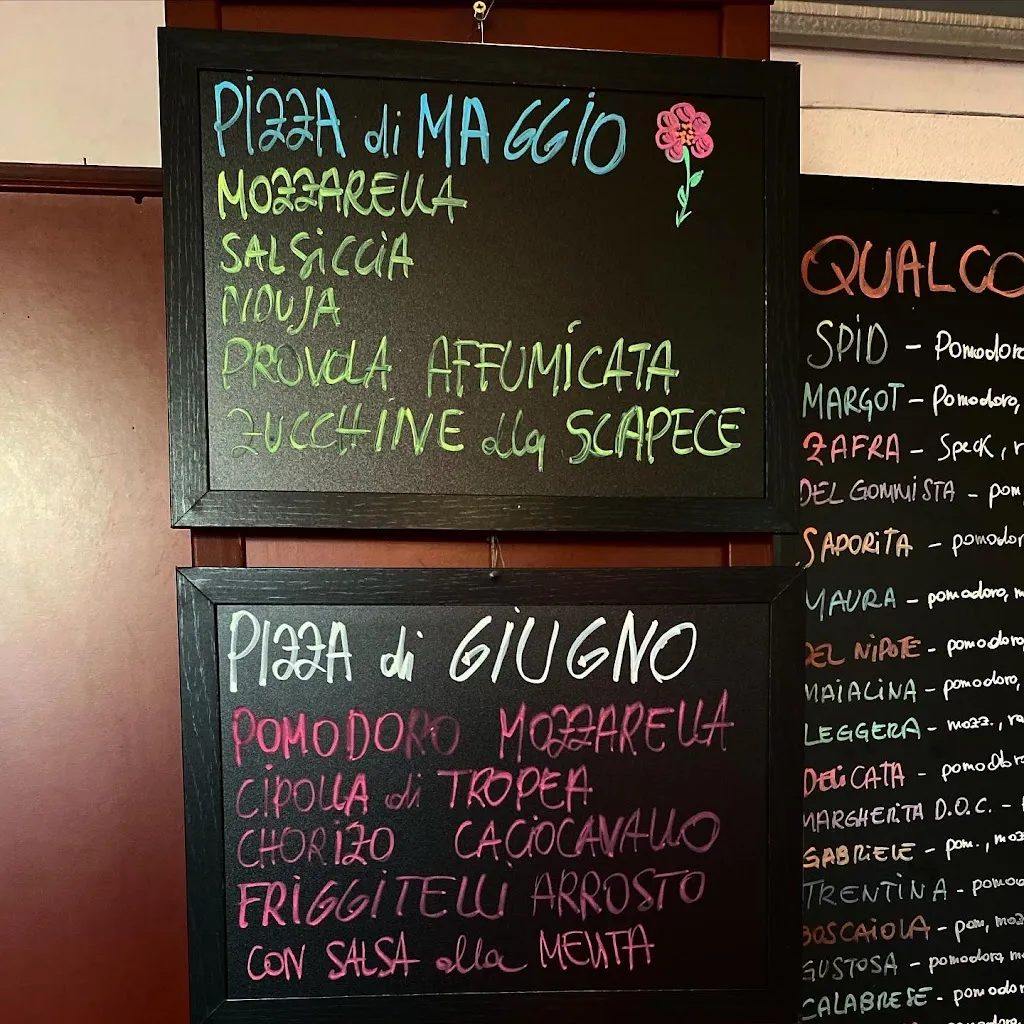 PIZZA di MAGGIO
MOZZARELLA
SALSICCIA
NDUJA
PROVOLA AFFUMICATA
ZUCCHINE alla SCAPECE
PIZZA di GIUGNO
POMODORO MOZZARELLA
CIPOLLA di TROPEA
CHORIZO CACIOCAVALLO
FRIGGITELLI ARROSTO
CON SALSA alla MENTA
QUALCO
SPID - Pomodoro
MARGOT - Pomodoro,
ZAFRA - Speck, r
DEL GOMMISTA - pom
SAPORITA - pomodor
MAURA - pomodoro, m
DEL NIPOTE - pomodoro
MAIALINA - pomodoro,
LEGGERA - mozz., ra
DELICATA - pomodoro
MARGHERITA D.O.C. -
GABRIELE - pom., moz
TRENTINA - pomod
BOSCAIOLA - pom, moz
GUSTOSA - pomodoro, m
CALABRESE - pomodor